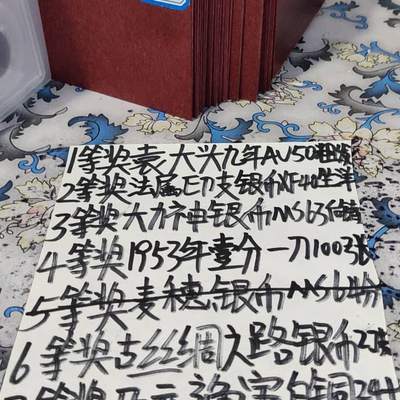 1等奖袁大头九年AU50粗发
2等奖法属印支银币XF40坐洋
3等奖大力神银币MS63
4等奖1953年壹分一刀100张
5等奖麦穗银币MS64
6等奖古丝绸之路银币2